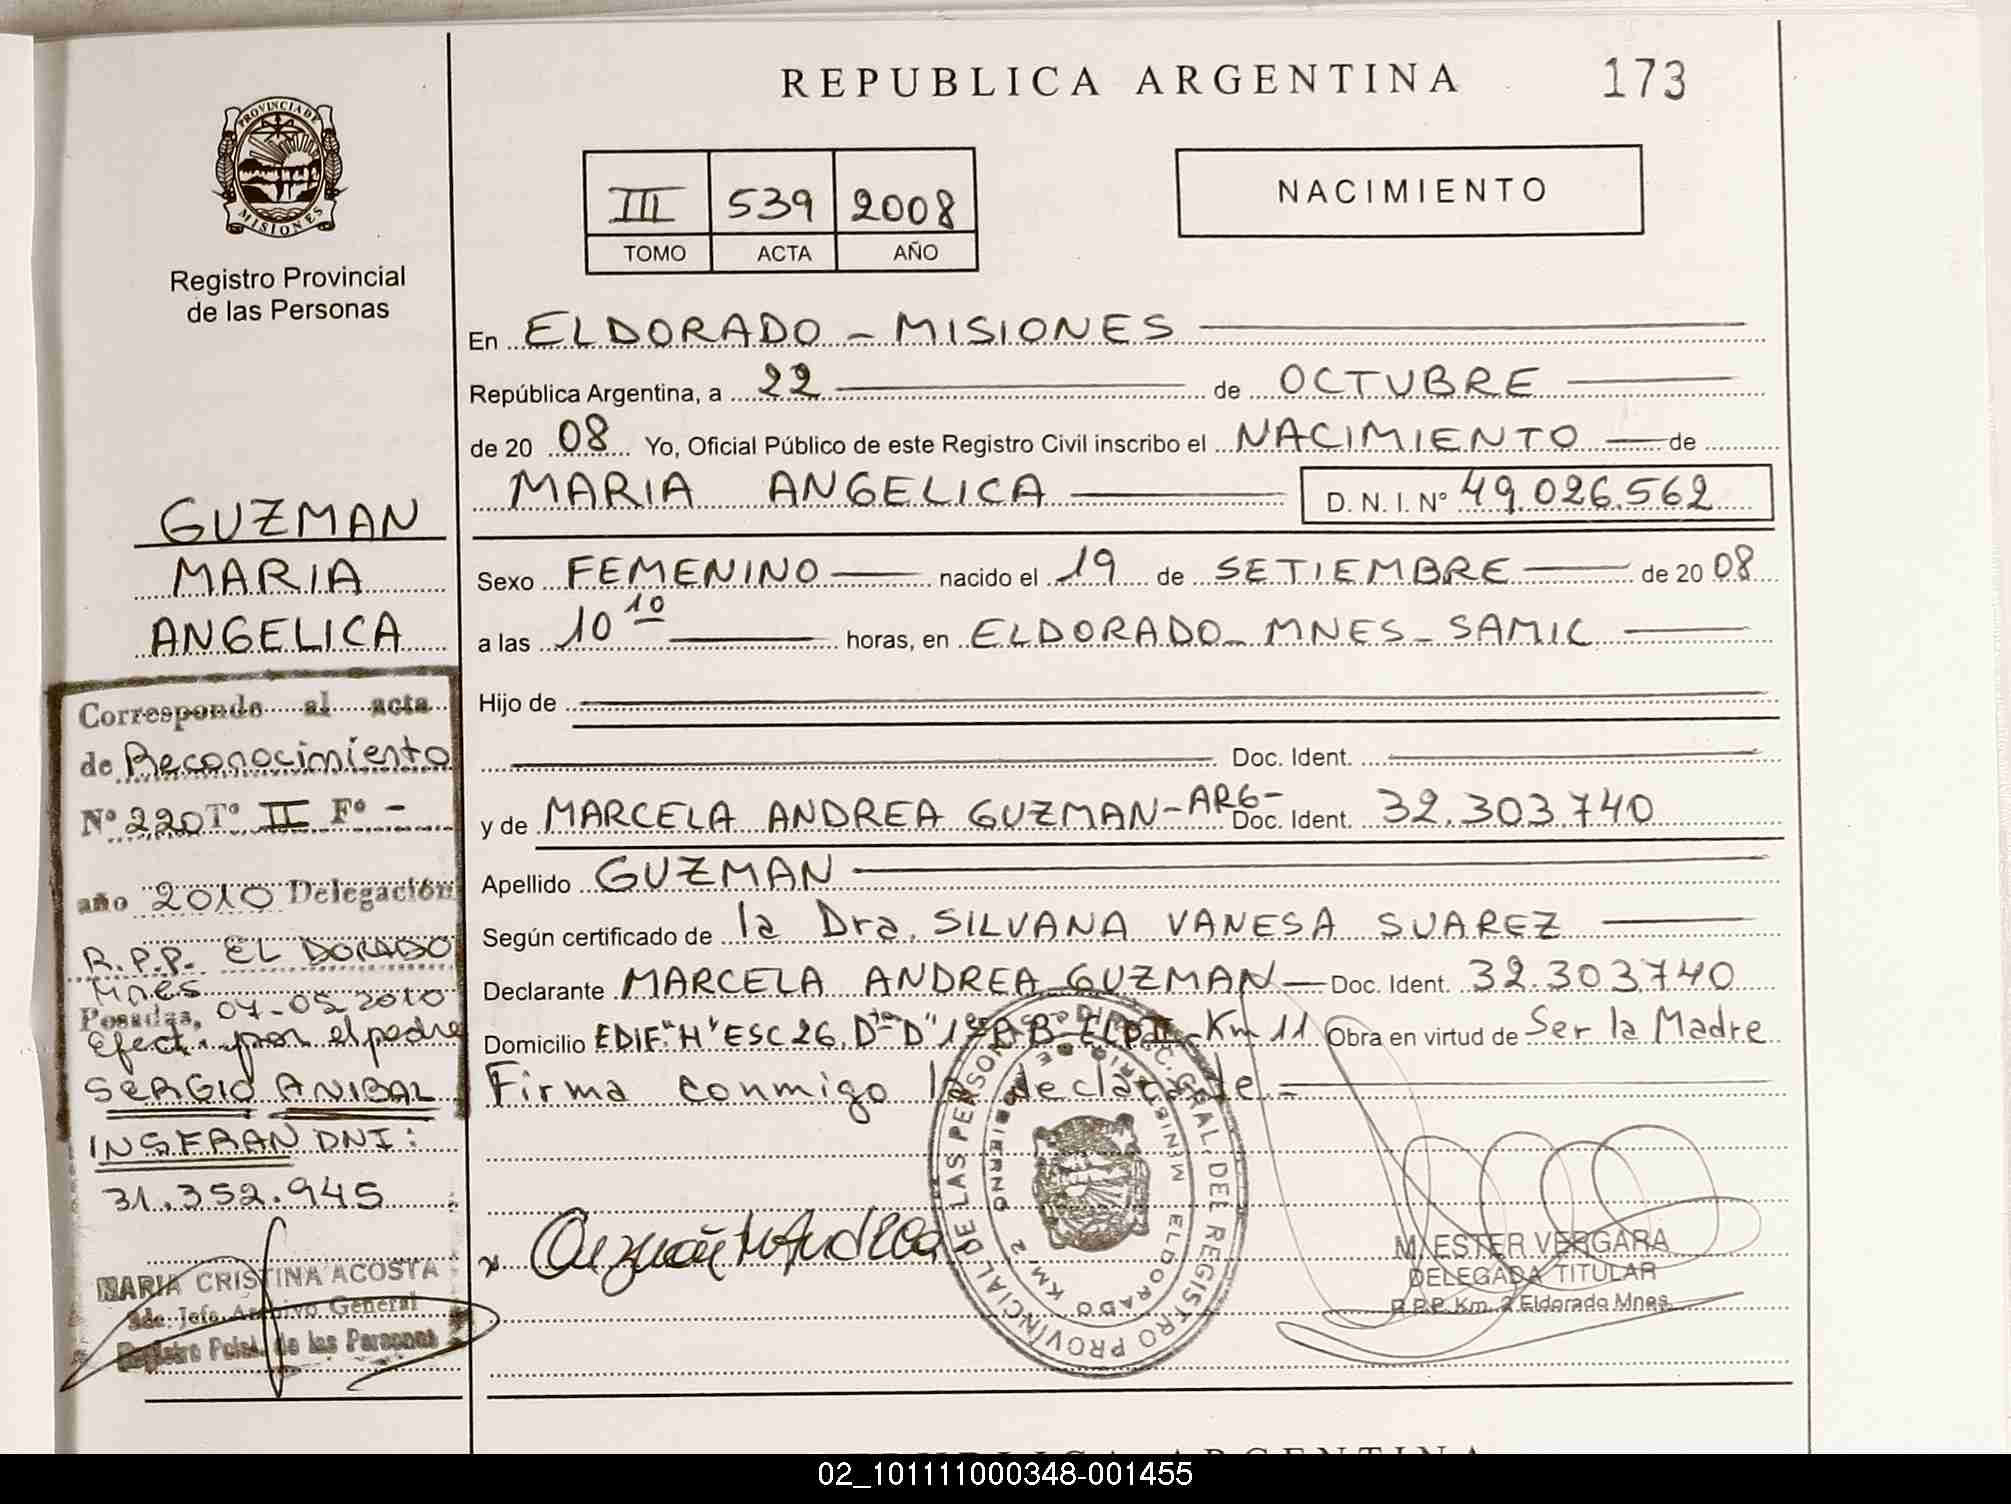 REPUBLICA ARGENTINA 173
PROVINCIA DE
MISIONES
Registro Provincial
de las Personas
III 539 2008
TOMO ACTA AÑO
NACIMIENTO
En ELDORADO - MISIONES
República Argentina, a 22 de OCTUBRE
de 20 08 Yo, Oficial Público de este Registro Civil inscribo el NACIMIENTO de
MARIA ANGELICA D. N. I. Nº 49.026.562
Sexo FEMENINO nacido el 19 de SETIEMBRE de 20 08
a las 10 10 horas, en ELDORADO - MNES - SAMIC
Hijo de
Doc. Ident.
y de MARCELA ANDREA GUZMAN - ARG - Doc. Ident. 32.303.740
Apellido GUZMAN
Según certificado de la Dra. SILVANA VANESA SUAREZ
Declarante MARCELA ANDREA GUZMAN - Doc. Ident. 32.303.740
Domicilio EDIF. "H" ESC 26. Dto "D" Km 11 Obra en virtud de Ser la Madre
Firma conmigo la declarante.-
Guzmán M Andrea
M. ESTER VERGARA
DELEGADA TITULAR
R.P.P. Km. 2 Eldorado Mnes.
DIREC. GRAL. DEL REGISTRO PROVINCIAL DE LAS PERSONAS
MINISTERIO DE GOBIERNO
ELDORADO KM 2
GUZMAN
MARIA
ANGELICA
Corresponde al acta
de Reconocimiento
Nº 220 Tº II Fº -
año 2010 Delegación
R.P.P. EL DORADO
Mnes
Posadas, 07-05-2010
Efect. por el padre
SERGIO ANIBAL
INSFRAN DNI:
31.352.945
MARIA CRISTINA ACOSTA
2do. Jefe Archivo General
Registro Pcial. de las Personas
REPUBLICA ARGENTINA
02_101111000348-001455